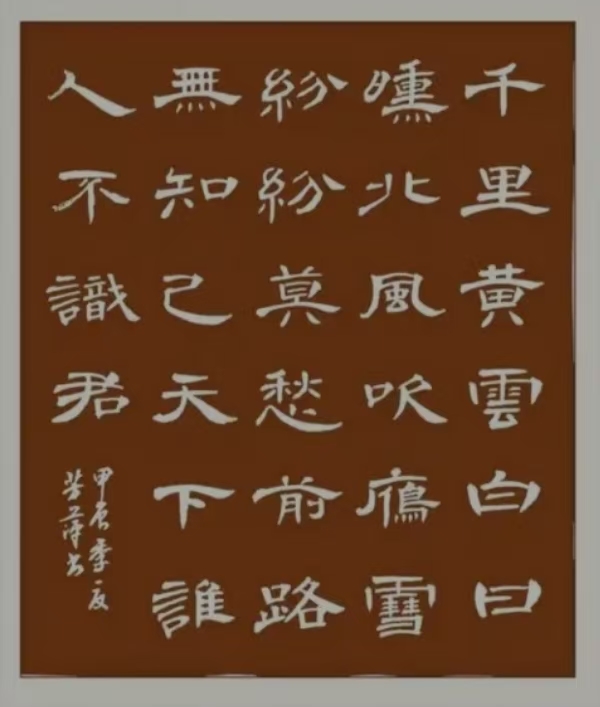 千里黄雲白日
曛北風吹鴈雪
紛紛莫愁前路
無知己天下誰
人不識君
甲辰季夏
书